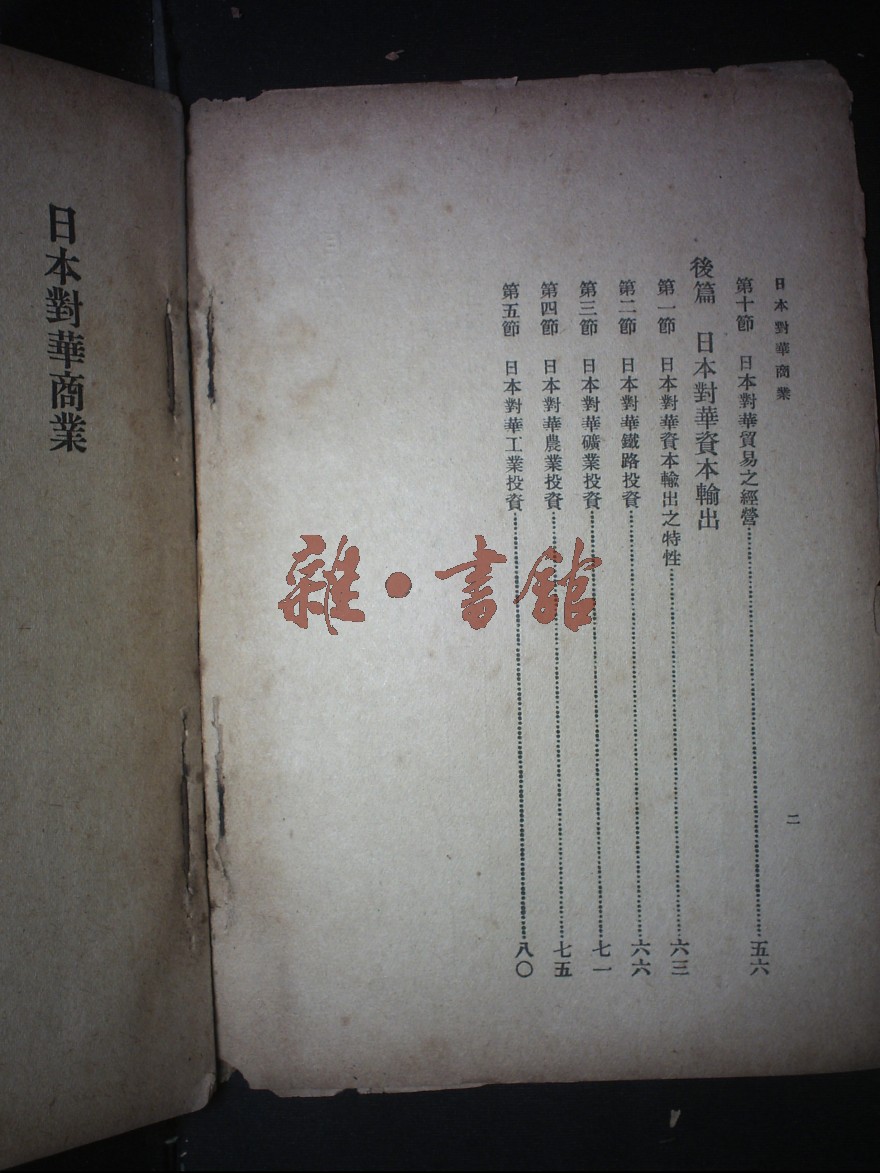 日本對華商業
二
第十節 日本對華貿易之經營⋯⋯⋯⋯⋯⋯⋯⋯五六
後篇 日本對華資本輸出
第一節 日本對華資本輸出之特性⋯⋯⋯⋯⋯⋯⋯⋯六三
第二節 日本對華鐵路投資⋯⋯⋯⋯⋯⋯⋯⋯六六
第三節 日本對華礦業投資⋯⋯⋯⋯⋯⋯⋯⋯七一
第四節 日本對華農業投資⋯⋯⋯⋯⋯⋯⋯⋯七五
第五節 日本對華工業投資⋯⋯⋯⋯⋯⋯⋯⋯八〇
日本對華商業
雜·書館